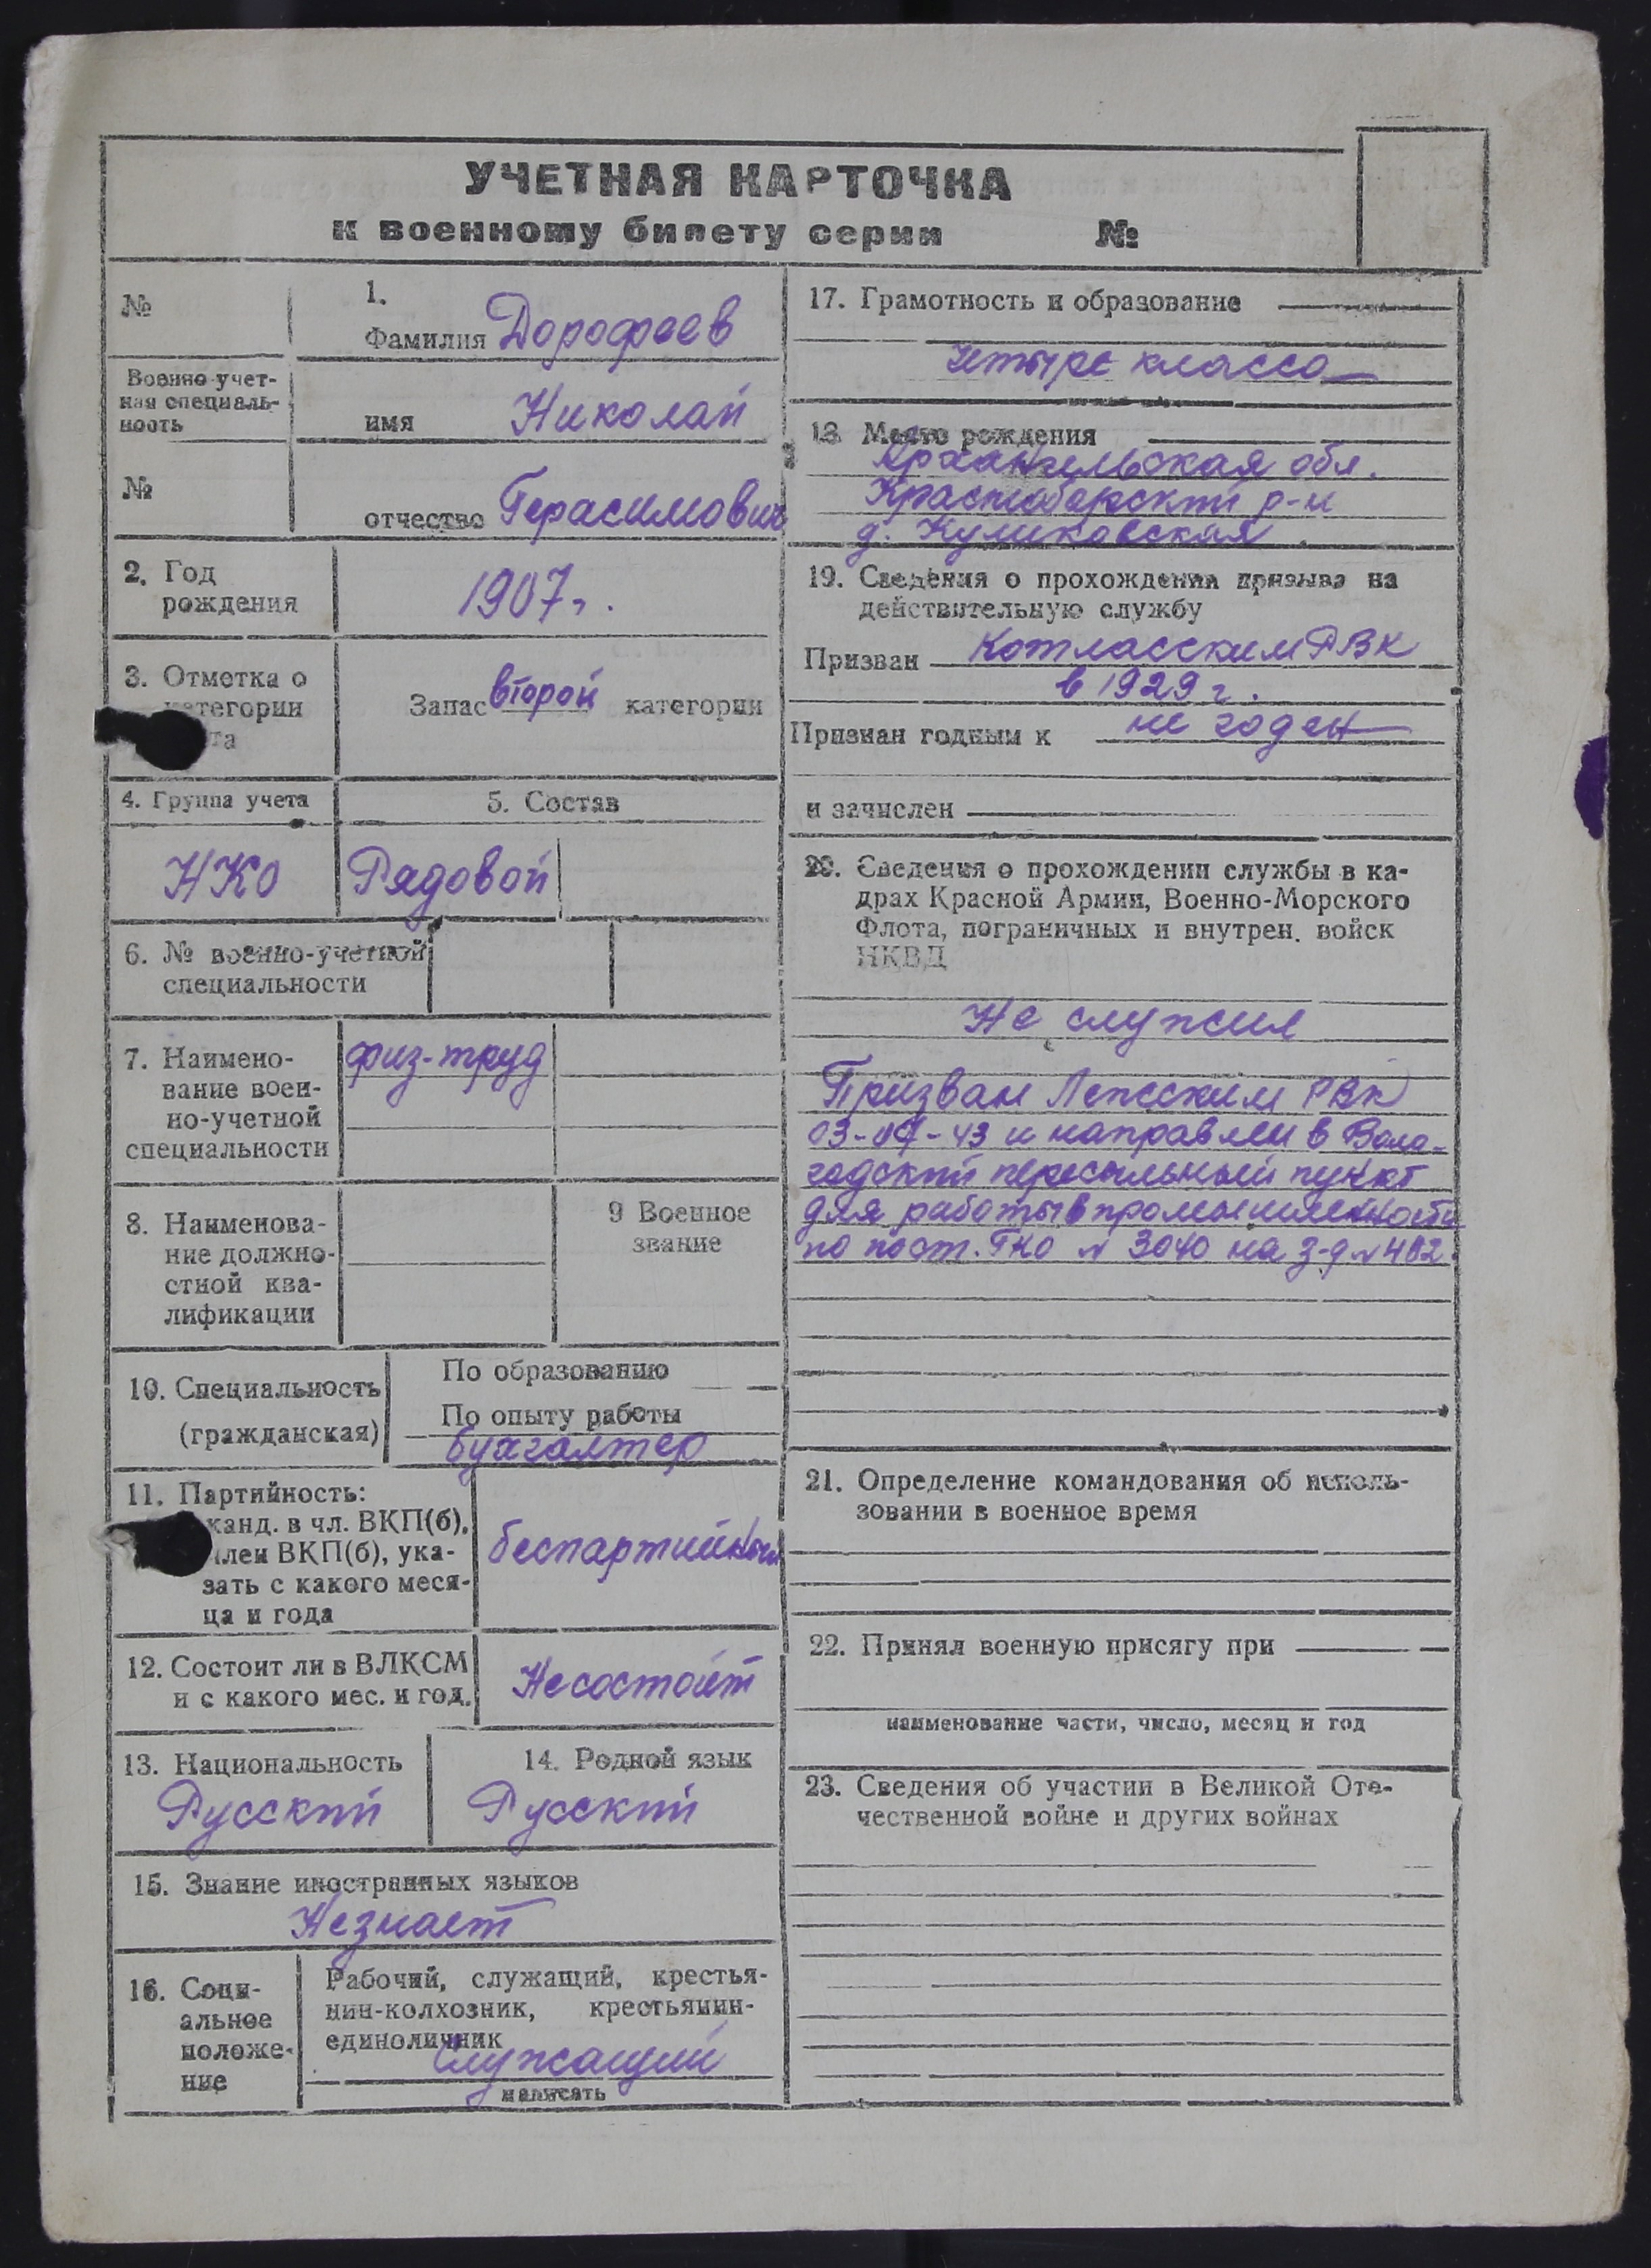 УЧЕТНАЯ КАРТОЧКА
к военному билету серии №
№
1.
Фамилия Дорофеев
Военно-учет-
ная специаль-
ность
имя Николай
№
отчество Герасимович
2. Год
рождения
1907 г.
3. Отметка о
категории
та
Запас второй категории
4. Группа учета
5. Состав
НКО
Рядовой
6. № военно-учетной
специальности
7. Наимено-
вание воен-
но-учетной
специальности
физ-труд
8. Наименова-
ние должно-
стной ква-
лификации
9 Военное
звание
10. Специальность
(гражданская)
По образованию
По опыту работы
бухгалтер
11. Партийность:
канд. в чл. ВКП(б),
член ВКП(б), ука-
зать с какого меся-
ца и года
беспартийный
12. Состоит ли в ВЛКСМ
и с какого мес. и год.
Не состоит
13. Национальность
Русский
14. Родной язык
Русский
15. Знание иностранных языков
Не знает
16. Соци-
альное
положе-
ние
Рабочий, служащий, крестья-
нин-колхозник, крестьянин-
единоличник
Служащий
написать
17. Грамотность и образование
четыре класса
18 Место рождения
Архангельская обл.
Красноборский р-н
д. Куликовская
19. Сведения о прохождении призыва на
действительную службу
Призван Котласским РВК
в 1929 г.
Признан годным к не годен
и зачислен
20. Сведения о прохождении службы в ка-
драх Красной Армии, Военно-Морского
Флота, пограничных и внутрен. войск
НКВД
Не служил
Призван Ленским РВК
03-04-43 и направлен в Воло-
годский пересыльный пункт
для работы в промышленности
по пост. ГКО № 3040 на з-д № 402.
21. Определение командования об исполь-
зовании в военное время
22. Принял военную присягу при
наименование части, число, месяц и год
23. Сведения об участии в Великой Оте-
чественной войне и других войнах